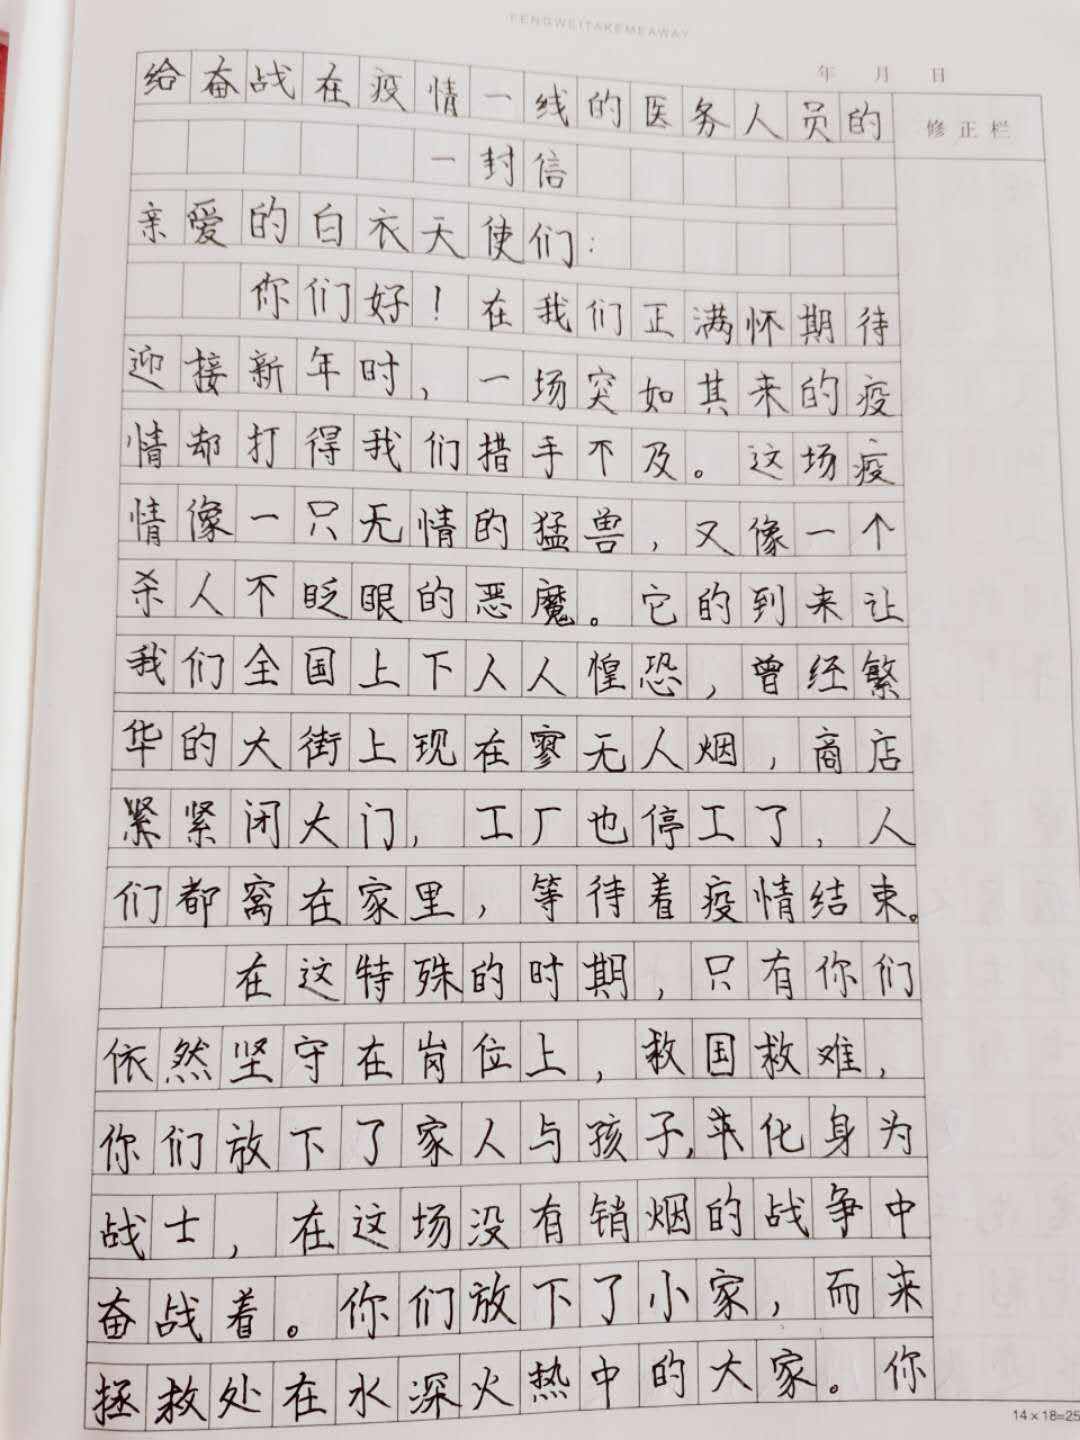 FENGWEITAKEMEAWAY
年 月 日
修正栏
给奋战在疫情一线的医务人员的
一封信
亲爱的白衣天使们：
你们好！在我们正满怀期待
迎接新年时，一场突如其来的疫
情却打得我们措手不及。这场疫
情像一只无情的猛兽，又像一个
杀人不眨眼的恶魔。它的到来让
我们全国上下人人惶恐，曾经繁
华的大街上现在寥无人烟，商店
紧紧闭大门，工厂也停工了，人
们都窝在家里，等待着疫情结束。
在这特殊的时期，只有你们
依然坚守在岗位上，救国救难，
你们放下了家人与孩子，来化身为
战士，在这场没有销烟的战争中
奋战着。你们放下了小家，而来
拯救处在水深火热中的大家。你
14×18=25